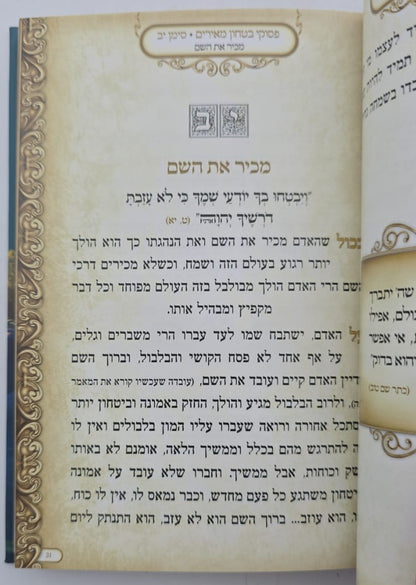 פסוקי בטחון מאירים • סימן יב
מכיר את השם
מכיר את השם
"וְיִבְטְחוּ בְךָ יוֹדְעֵי שְׁמֶךָ כִּי לֹא עָזַבְתָּ
דֹרְשֶׁיךָ יְהוָה" (ט, יא)
ככל שהאדם מכיר את השם ואת הנהגתו כך הוא הולך
יותר רגוע בעולם הזה ושמח, וכשלא מכירים דרכי
השם הרי האדם הולך מבולבל בזה העולם מפוחד וכל דבר
מקפיץ ומבהיל אותו.
האדם, ישתבח שמו לעד עברו הרי משברים וגלים,
על אף אחד לא פסח הקושי והבלבול, וברוך השם
עדיין האדם קיים ועובד את השם, (עובדה שעכשיו קורא את המאמר
ולרוב הבלבול מגיע והולך, החזק באמונה וביטחון יותר
מסתכל אחורה ורואה שעברו עליו המון בלבולים ואין לו
להתרגש מהם בכלל וממשיך הלאה, אומנם לא באותו
וכוחות, אבל ממשיך. וחברו שלא עובד על אמונה
וביטחון משתגע כל פעם מחדש, וכבר נמאס לו, אין לו כוח,
הוא עוזב... ברוך השם הוא לא עזב, הוא התנתק ליום
31
לעצמו
תמיד
בשמחה
שה' יתברך
אפילו
אי אפשר
(כתר שם טוב)